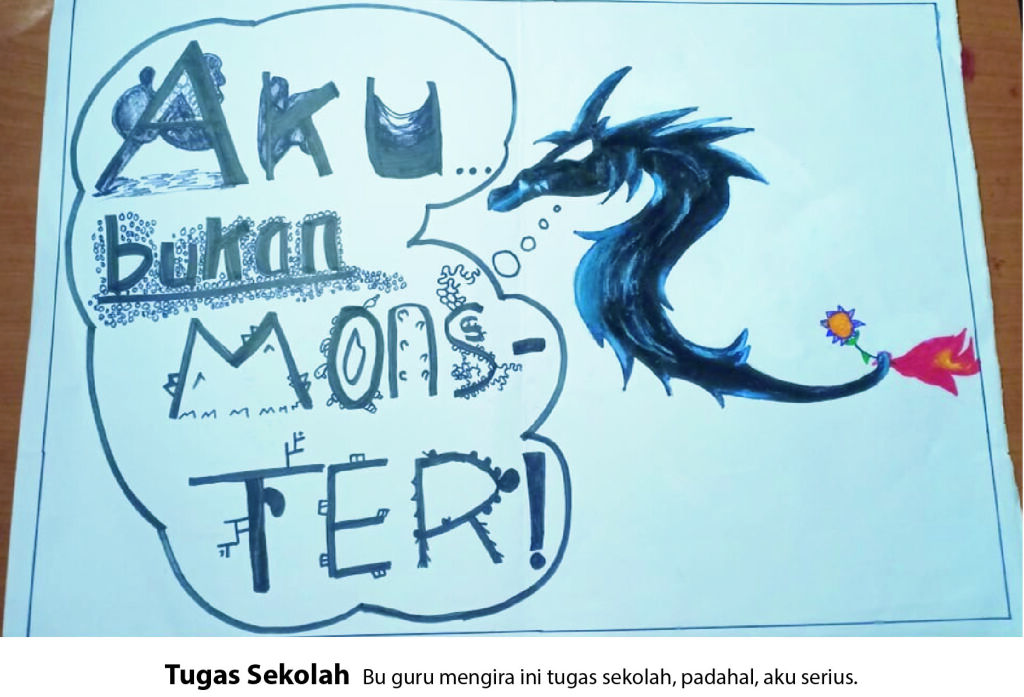 Aku...
bukan
MONS-
TER!
Tugas Sekolah Bu guru mengira ini tugas sekolah, padahal, aku serius.